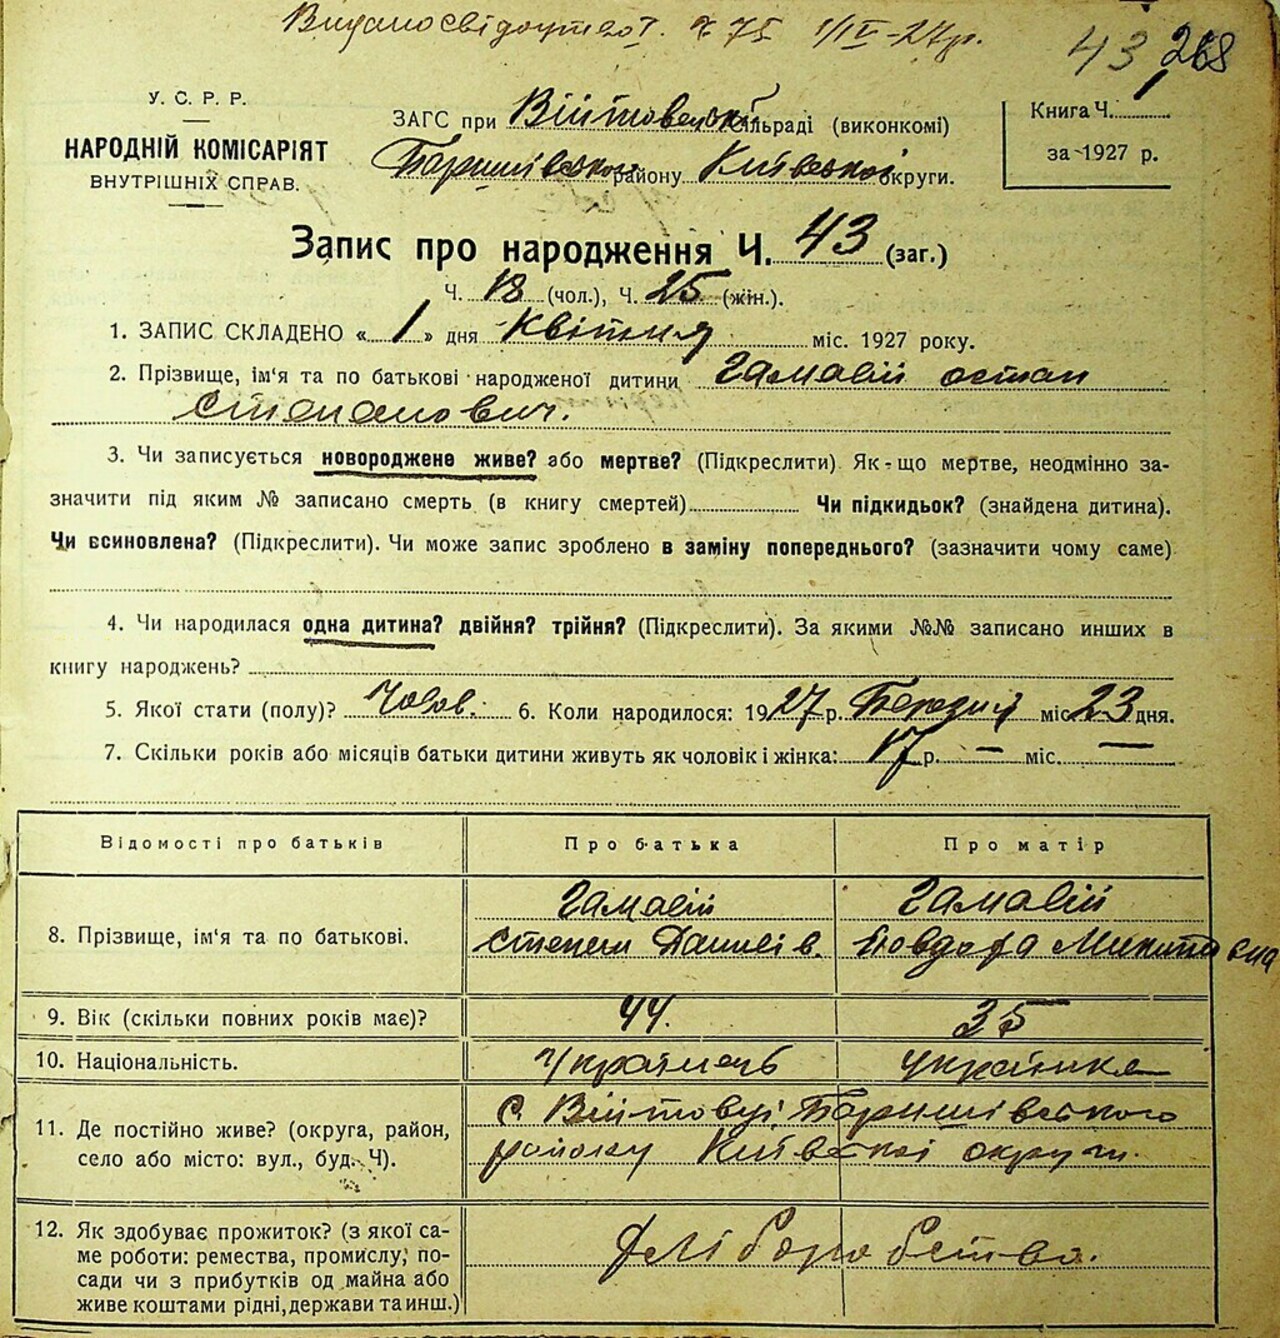 Видано свідоцтво Ч. 75 1/IV-27р.
43 268
У. С. Р. Р.
НАРОДНІЙ КОМІСАРІЯТ
ВНУТРІШНІХ СПРАВ.
ЗАГС при Війтовецькій сільраді (виконкомі)
Баришівського району Київської округи.
Книга Ч. 1
за 1927 р.
Запис про народження Ч. 43 (заг.)
Ч. 18 (чол.), Ч. 25 (жін.).
1. ЗАПИС СКЛАДЕНО « 1 » дня Квітня міс. 1927 року.
2. Прізвище, ім'я та по батькові народженої дитини Гамалій остап
Степанович.
3. Чи записується новороджене живе? або мертве? (Підкреслити) Як-що мертве, неодмінно за-
значити під яким № записано смерть (в книгу смертей) Чи підкидьок? (знайдена дитина).
Чи всиновлена? (Підкреслити). Чи може запис зроблено в заміну попереднього? (зазначити чому саме)
4. Чи народилася одна дитина? двійня? трійня? (Підкреслити). За якими №№ записано инших в
книгу народжень?
5. Якої стати (полу)? Чолов. 6. Коли народилося: 1927 р. Березня міс. 23 дня.
7. Скільки років або місяців батьки дитини живуть як чоловік і жінка: 17 р. — міс. —
Відомості про батьків Про батька Про матір
8. Прізвище, ім'я та по батькові. Гамалій Степан Данилів. Гамалій Явдоха Микитавна
9. Вік (скільки повних років має)? 44. 35
10. Національність. Українець Українка
11. Де постійно живе? (округа, район,
село або місто: вул., буд. Ч). с. Війтовці Баришівського
району Київської округи.
12. Як здобуває прожиток? (з якої са-
ме роботи: ремества, промислу, по-
сади чи з прибутків од майна або
живе коштами рідні, держави та инш.) Хліборобство.